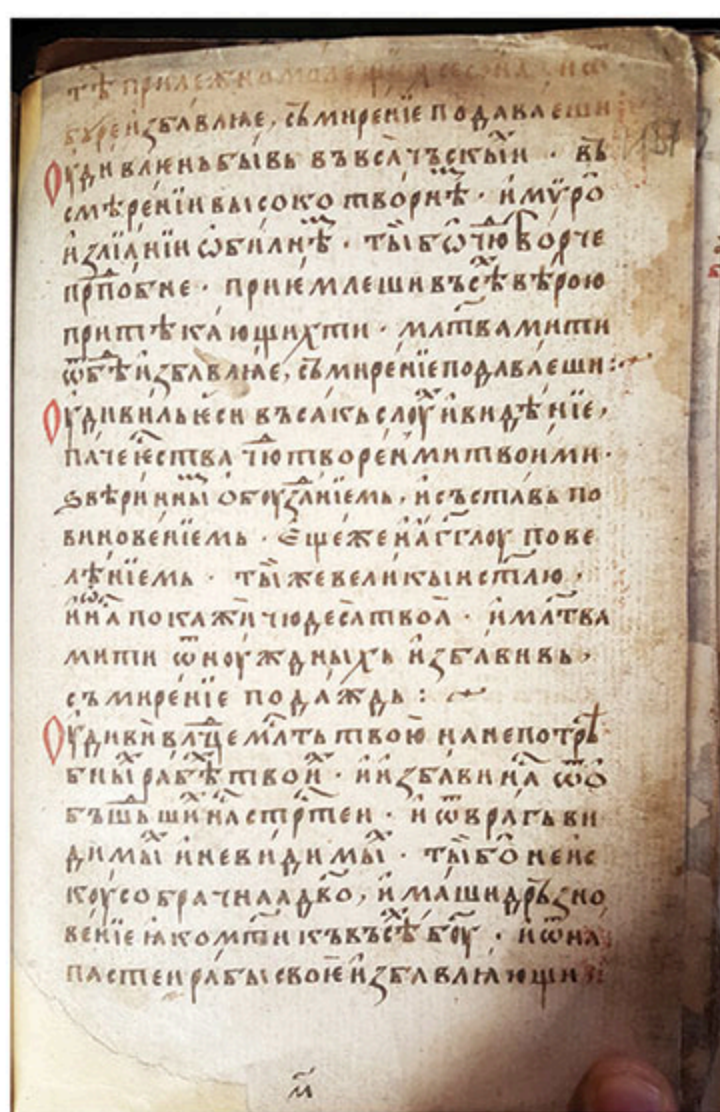 тѣ прилежно
бѹре избавлꙗе, съмиренїе подаваеши
Оудивлѥнь бывь въ всѧчьскыⷯи · въ
смѣренїи высоко творнѣ · и мѵро
излїанїи ѡбилнѣ · ты бо ѿче
прⷣпобне · приѥмлеши въсѣⷯ вѣрою
притѣкающихти · млт҃вами ти
ѿ бѣⷣ избавлꙗе, съмиренїе подаваеши :
Оудивиль ѥси въсакь слоуⷯ и видѣнїе,
паче ѥства чюⷣ творен'ми твоими ·
ѕвѣринны обоузанїемь, и съставь по
виновенїемь · Еще же на г҃глоу пове
лѣнїемь · ты же великыи ст҃лю ·
и нн҃ꙗ покажи чюдеса твоа · и млт҃ва
ми ти ѿ ноуждныхъ избавивь,
съмиренїе подаждь :
Оудиви влⷣце млⷭть твою на непотрѣ
бныⷯ рабѣⷯ твоиⷯ · и избави на ѿ ѡ
бьшьⷣшиⷯ на стрⷭтеи · и ѿ врагь ви
димыⷯ и невидимыⷯ · ты бо неис
коусобрачнаа дв҃о, имаши дрьзно
венїе ꙗко мт҃и къ въсѣⷯ бг҃оу · и ѿ на
пастеи рабы своѥ избавлꙗющи
м҃
137